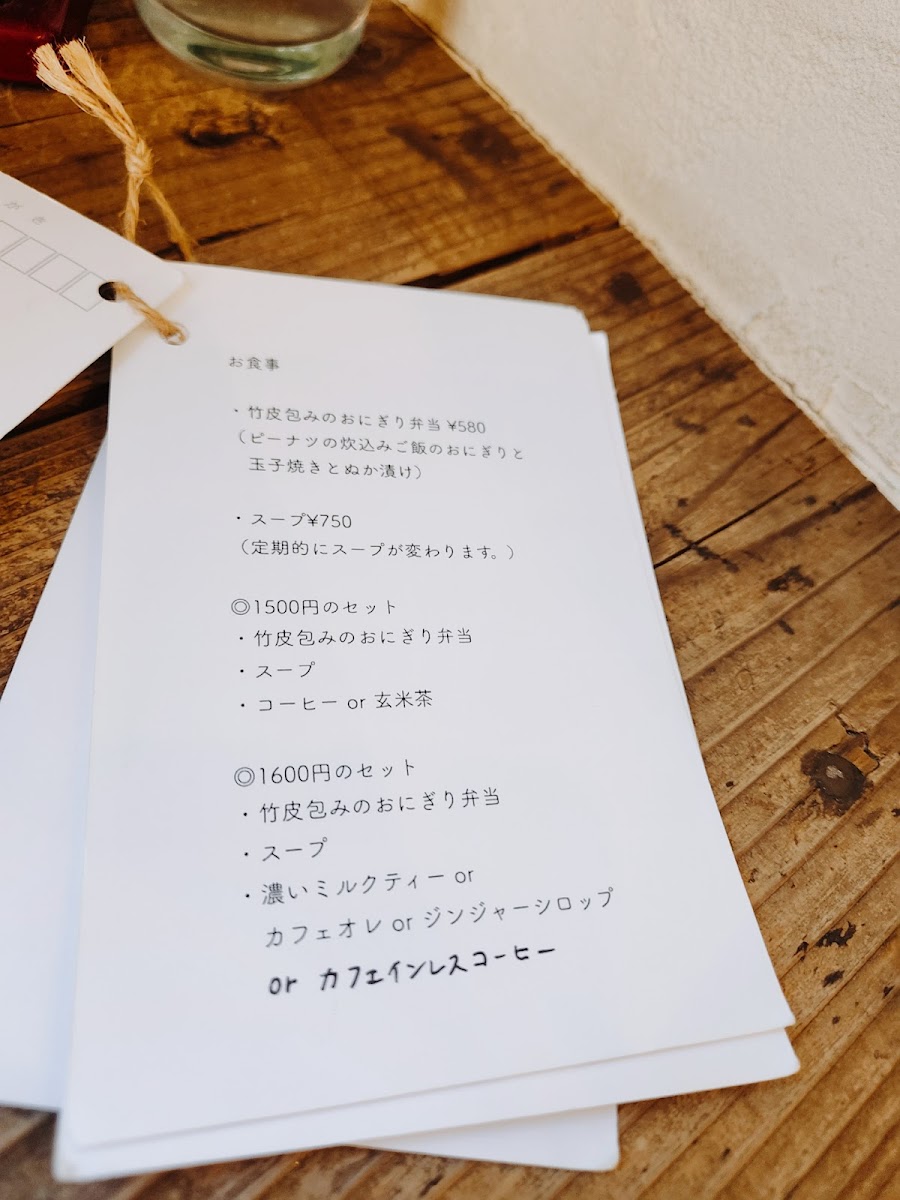 がき
お食事
・竹皮包みのおにぎり弁当 ¥580
（ピーナツの炊込みご飯のおにぎりと
玉子焼きとぬか漬け）
・スープ¥750
（定期的にスープが変わります。）
◎1500円のセット
・竹皮包みのおにぎり弁当
・スープ
・コーヒー or 玄米茶
◎1600円のセット
・竹皮包みのおにぎり弁当
・スープ
・濃いミルクティー or
カフェオレ or ジンジャーシロップ
or カフェインレスコーヒー